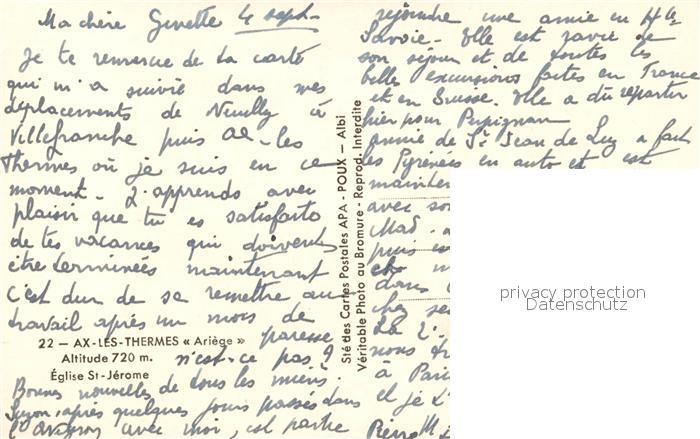 Ma chère Ginette 4 sept.
Je te remercie de ta carte
qui m'a suivie dans mes
déplacements de Neuilly à
Villefranche puis Ax-les-
Thermes où je suis en ce
moment. J'apprends avec
plaisir que tu es satisfaite
de tes vacances qui doivent
être terminées maintenant
C'est dur de se remettre au
travail après un mois de
paresse
n'est-ce pas ?
22 — AX-LES-THERMES « Ariège »
Altitude 720 m.
Église St-Jérome
Bonnes nouvelles de tous les miens.
Suzon, après quelques jours passés dans
l'Aveyron avec moi, est partie
Sté des Cartes Postales APA - POUX - Albi
Véritable Photo au Bromure - Reprod. Interdite
rejoindre une amie en Hte
Savoie. Elle est ravie de
son séjour et de toutes les
belles excursions faites en France
et en Suisse. Elle a dû repartir
hier pour Perpignan
amie de St Jean de Luz a fait
les Pyrénées en auto et est
mainten
avec so
Mad.
puis
et
dans
chez se
La 2.
nous
à Pari
et je
Pierre M
privacy protection
Datenschutz